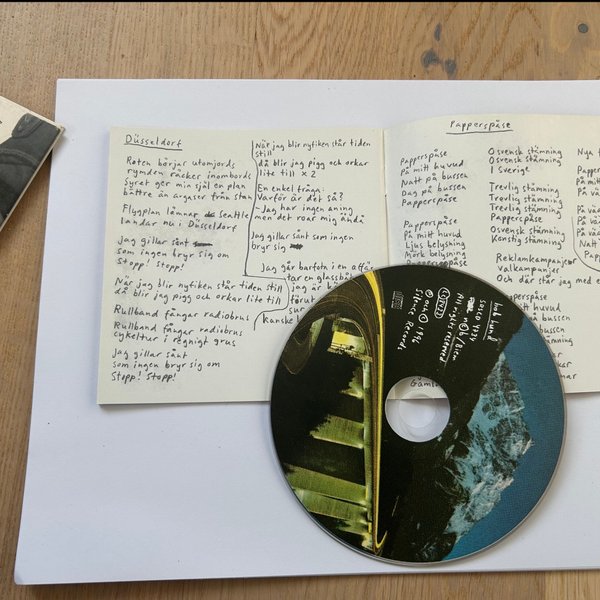 Düsseldorf
Roten börjar utomjords
rymden räcker inombords
syret ger min själ en plan
bättre än avgaser från stan
Flygplan lämnar Seattle
landar nu i Düsseldorf
Jag gillar sånt
som ingen bryr sig om
Stopp! Stopp!
När jag blir nyfiken står tiden still
då blir jag pigg och orkar lite till
Rullband fångar radiobrus
Rullband fångar radiobrus
cykeltur i regnigt grus
Jag gillar sånt
som ingen bryr sig om
Stopp! Stopp!
När jag blir nyfiken står tiden
still
då blir jag pigg och orkar
lite till x 2
En enkel fråga:
Varför är det så?
– Jag har ingen aning
men det roar mig ändå
Jag gillar sånt som ingen
bryr sig
Jag går barfota i en affär
tar en glasbåt
jag är k
förut
sur
kanske
Papperspåse
Papperspåse
På mitt huvud
Natt på bussen
Dag på bussen
Papperspåse
Papperspåse
På mitt huvud
Ljus belysning
Mörk belysning
Papperspåse
Gamla
Osvensk stämning
Osvensk stämning
I Sverige
Trevlig stämning
Trevlig stämning
Trevlig stämning
Papperspåse
Osvensk stämning
Konstig stämning
Reklamkampanjer
Valkampanjer
Och där står jag med e
Nya t
Papp
På
På vä
På vä
På vä
Natt
Pap
bob hund
SRSCD 4714
n©b/Biem
All rights reserved
℗ och © 1996
Silence Records